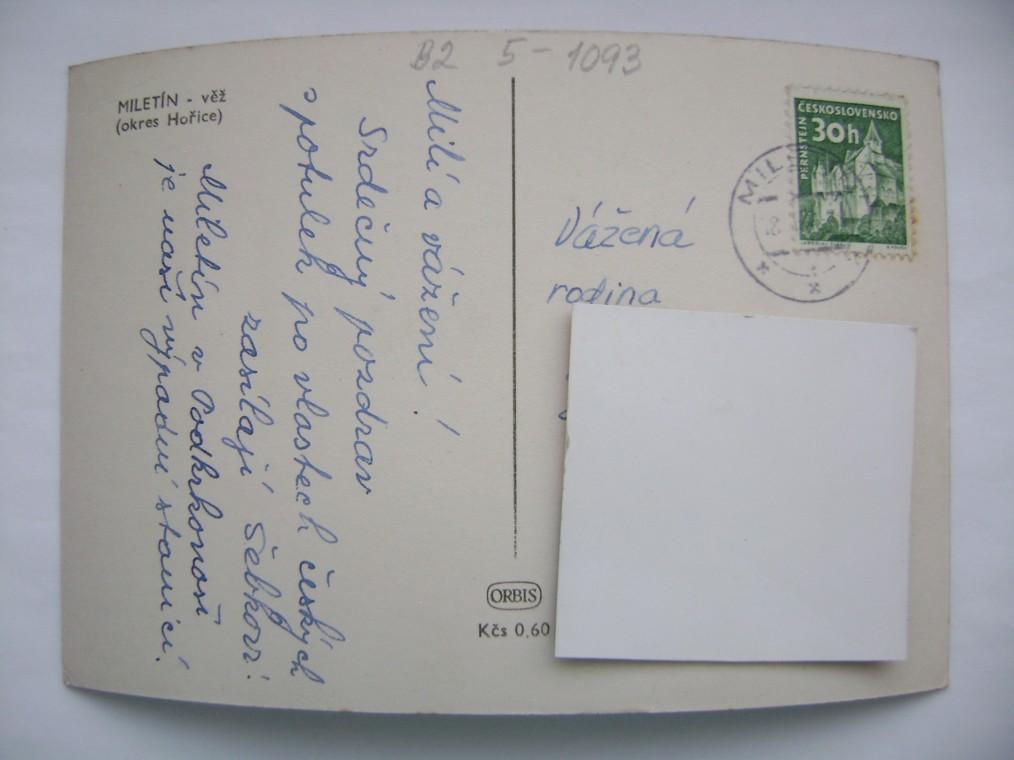 B2 5-1093
MILETÍN - věž
(okres Hořice)
Milí a vážení!
Srdečný pozdrav
s potulek po vlastech českých
zasílají Šebkovi.
Miletín v Podkrkonoší
je naší výpadní stanicí.
Vážená
rodina
ČESKOSLOVENSKO
30h
PERNŠTEJN
MIL
ORBIS
Kčs 0,60